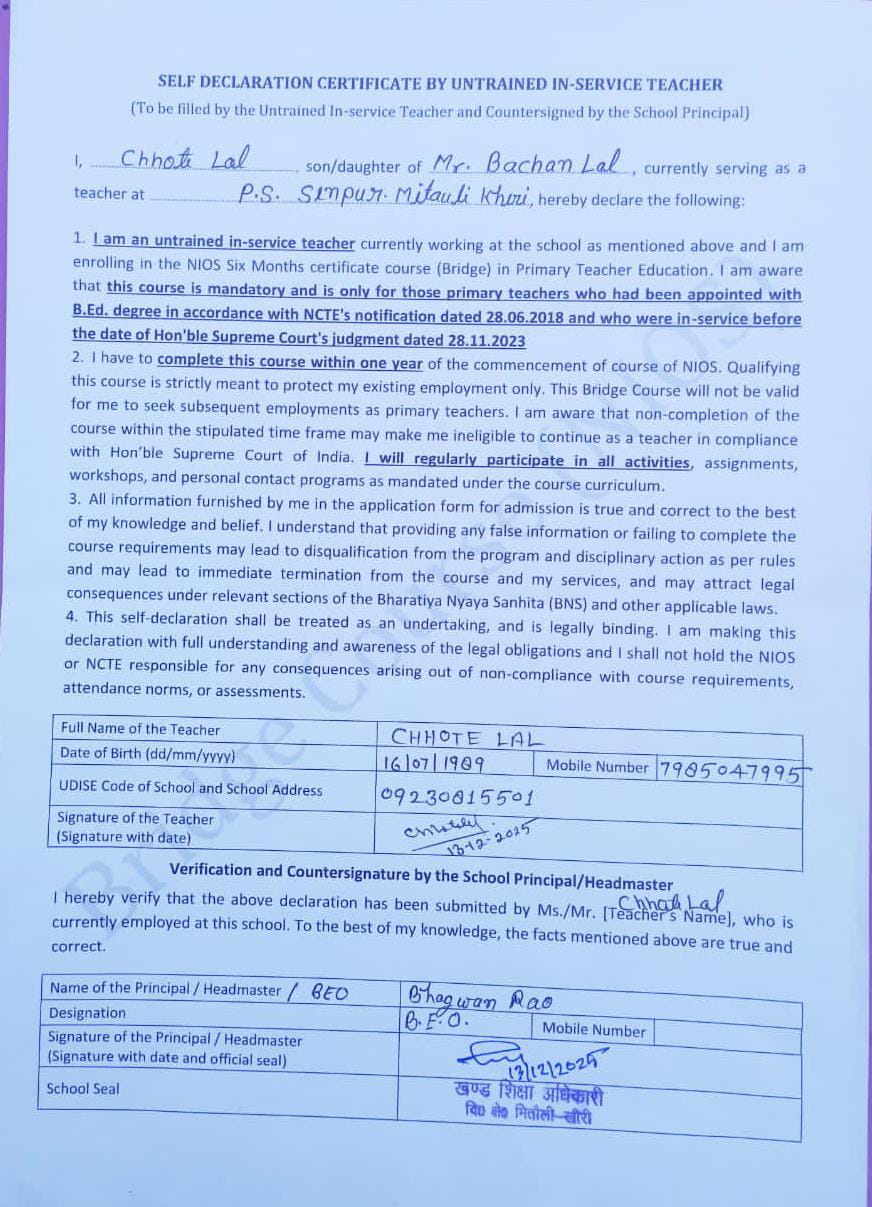 SELF DECLARATION CERTIFICATE BY UNTRAINED IN-SERVICE TEACHER
(To be filled by the Untrained In-service Teacher and Countersigned by the School Principal)
I, Chhote Lal, son/daughter of Mr. Bachan Lal, currently serving as a
teacher at P.S. Sinpur. Mitauli Kheri, hereby declare the following:
1. I am an untrained in-service teacher currently working at the school as mentioned above and I am
enrolling in the NIOS Six Months certificate course (Bridge) in Primary Teacher Education. I am aware
that this course is mandatory and is only for those primary teachers who had been appointed with
B.Ed. degree in accordance with NCTE's notification dated 28.06.2018 and who were in-service before
the date of Hon'ble Supreme Court's judgment dated 28.11.2023
2. I have to complete this course within one year of the commencement of course of NIOS. Qualifying
this course is strictly meant to protect my existing employment only. This Bridge Course will not be valid
for me to seek subsequent employments as primary teachers. I am aware that non-completion of the
course within the stipulated time frame may make me ineligible to continue as a teacher in compliance
with Hon'ble Supreme Court of India. I will regularly participate in all activities, assignments,
workshops, and personal contact programs as mandated under the course curriculum.
3. All information furnished by me in the application form for admission is true and correct to the best
of my knowledge and belief. I understand that providing any false information or failing to complete the
course requirements may lead to disqualification from the program and disciplinary action as per rules
and may lead to immediate termination from the course and my services, and may attract legal
consequences under relevant sections of the Bharatiya Nyaya Sanhita (BNS) and other applicable laws.
4. This self-declaration shall be treated as an undertaking, and is legally binding. I am making this
declaration with full understanding and awareness of the legal obligations and I shall not hold the NIOS
or NCTE responsible for any consequences arising out of non-compliance with course requirements,
attendance norms, or assessments.
Full Name of the Teacher CHHOTE LAL
Date of Birth (dd/mm/yyyy) 16/07/1989 Mobile Number 7985047995
UDISE Code of School and School Address 09230815501
Signature of the Teacher
(Signature with date) 13-12-2025
Verification and Countersignature by the School Principal/Headmaster
I hereby verify that the above declaration has been submitted by Ms./Mr. [Teacher's Name], Chhote Lal who is
currently employed at this school. To the best of my knowledge, the facts mentioned above are true and
correct.
Name of the Principal / Headmaster / BEO Bhagwan Rao
Designation B.E.O. Mobile Number
Signature of the Principal / Headmaster
(Signature with date and official seal) 13/12/2025
School Seal खण्ड शिक्षा अधिकारी
वि० क्षे० मितौली-खीरी
Bridge Course (NIOS)